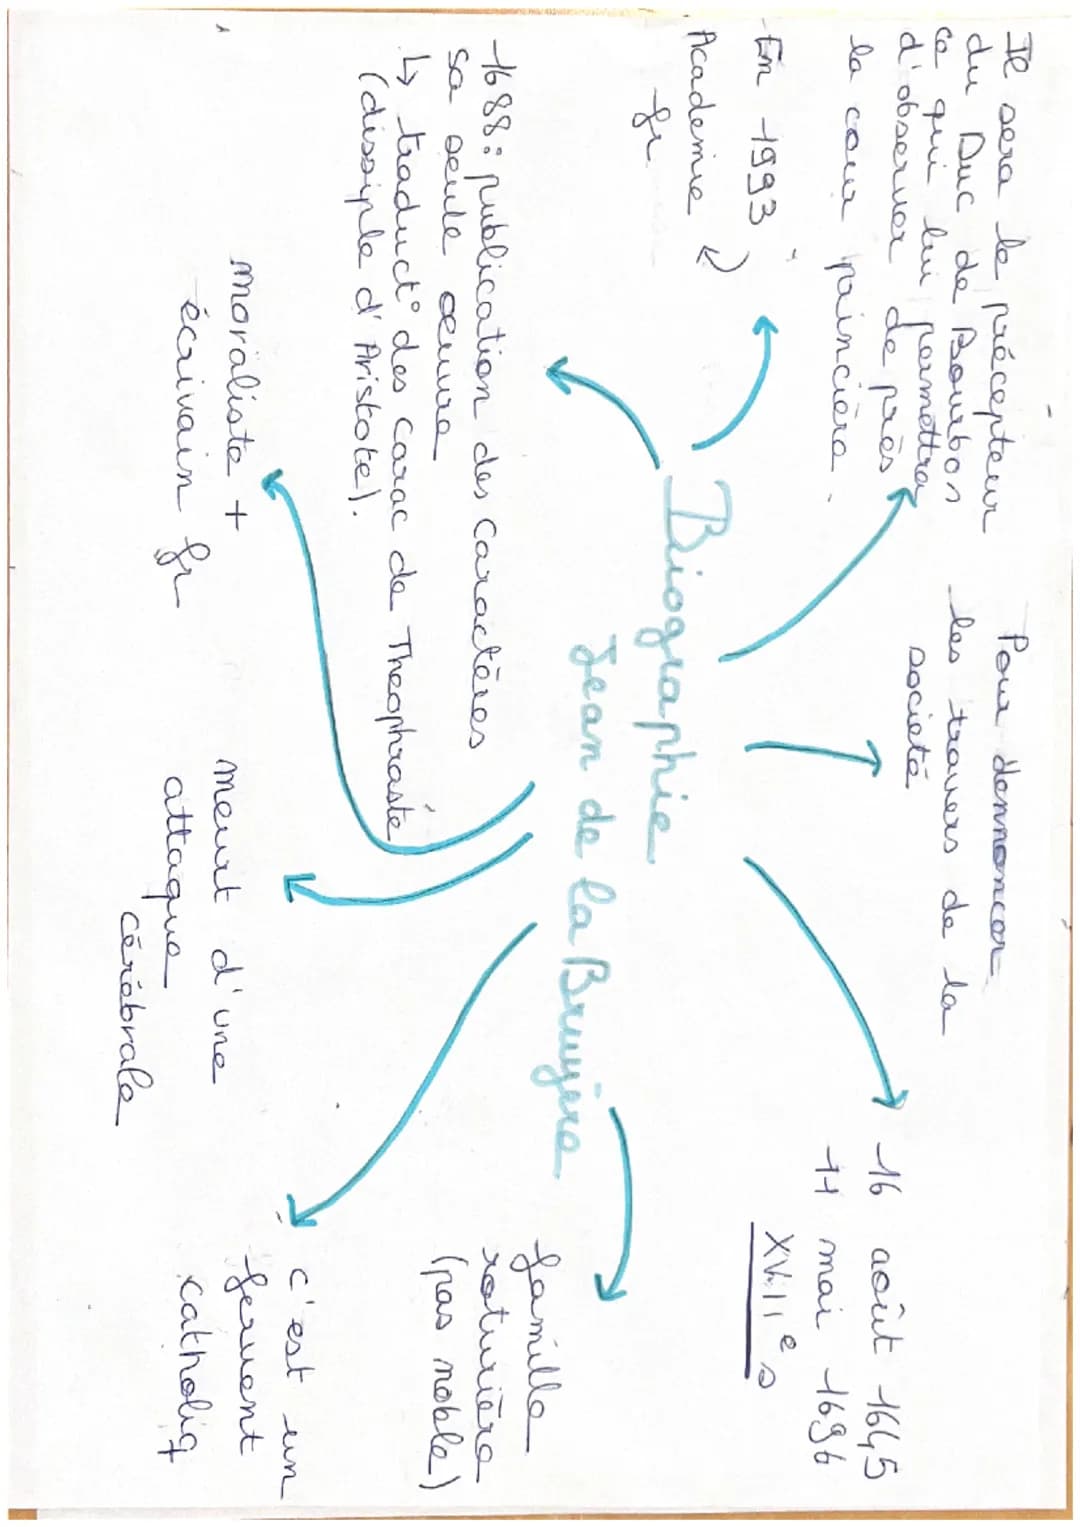 Il sera le précepteur
du Duc de Bourbon
ce qui lui permettra
d'observer de près
la cour princière.
Pour dennoncer
les travers de la
société
16 août 1645
11 mai 1696
XVIIe s
En 1993
Academie
fr
Biographie
Jean de la Bruyère
1688: publication des Caractères
sa seule oeuvre
↳ traduct° des carac de Theophraste
(dissiple d'Aristote).
famille
roturière
(pas noble)
moraliste +
écrivain fr
meurt d'une
attaque
cérébrale
c'est un
fervent
catholiq